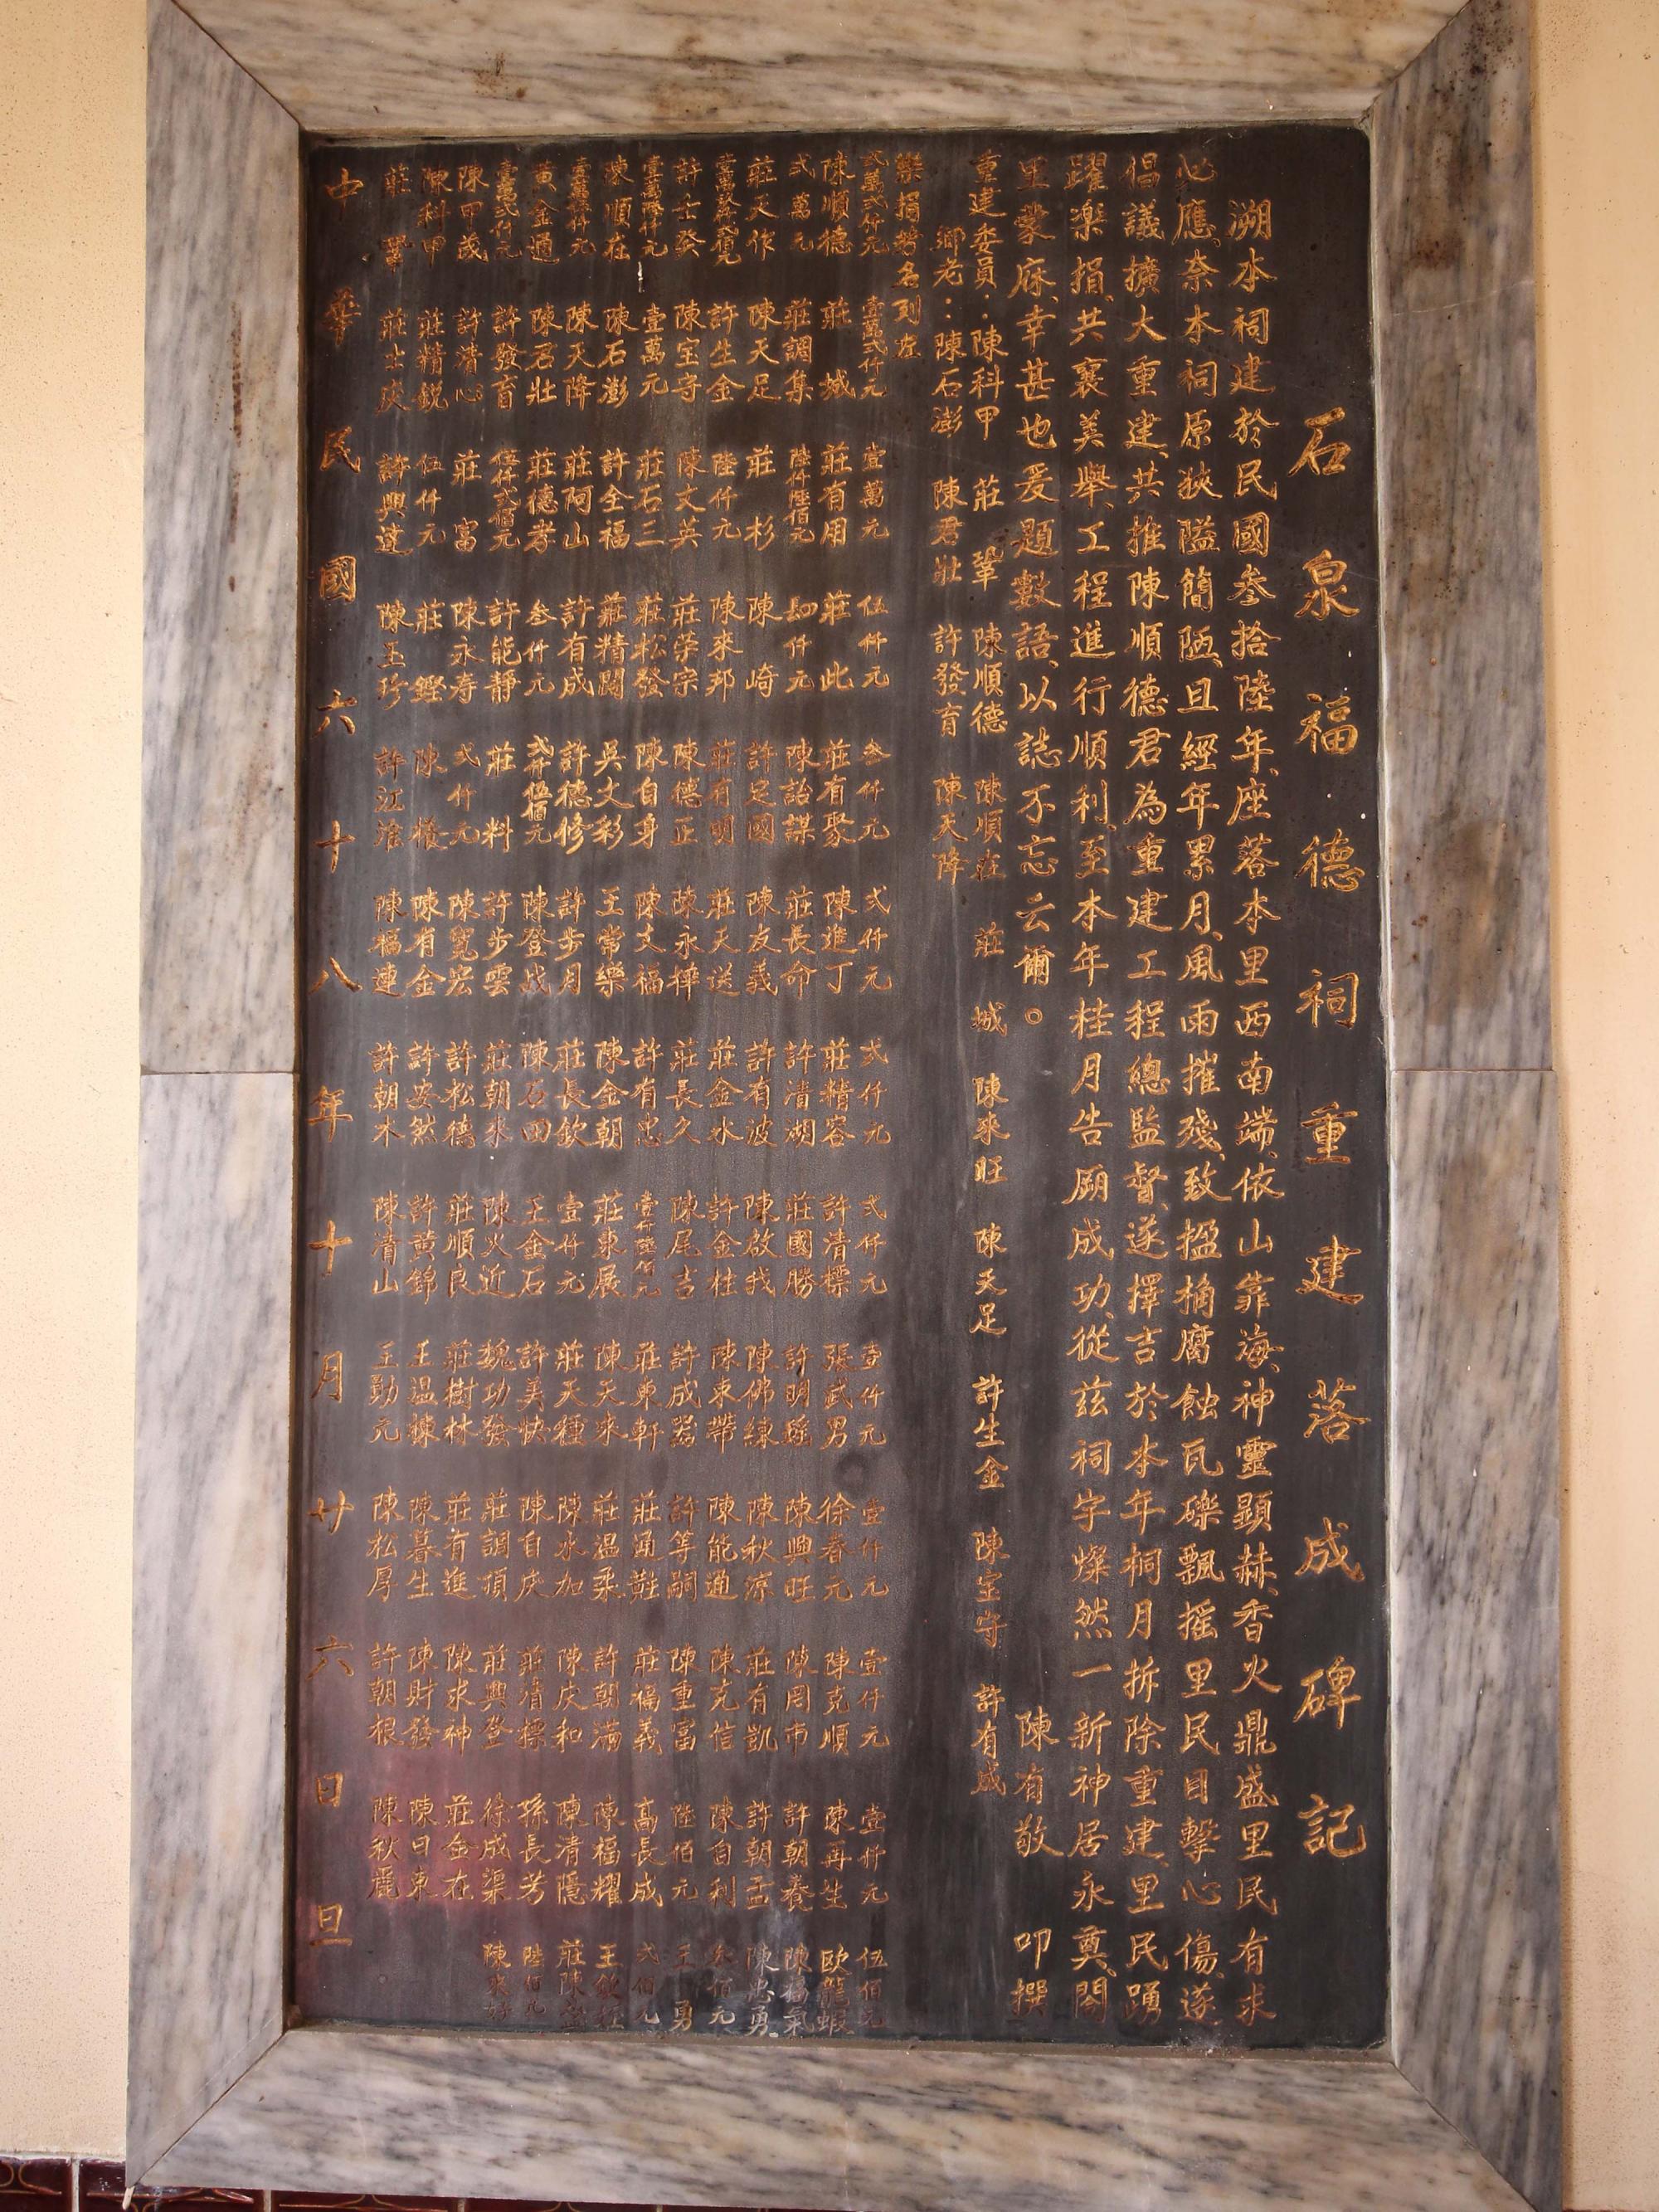 石泉福德祠重建落成碑記
溯本祠建於民國叁拾陸年、座落本里西南端、依山靠海、神靈顯赫、香火鼎盛里民有求
必應、奈本祠原狹隘簡陋、且經年累月、風雨摧殘、致楹桷腐蝕瓦礫飄搖里民目擊心傷、遂
倡議擴大重建、共推陳順德君為重建工程總監督、遂擇吉於本年桐月拆除重建、里民踴
躍樂捐、共襄美舉、工程進行順利、至本年桂月告厥成功、從茲祠宇燦然一新神居永奠、閤
里蒙庥、幸甚也爰題數語、以誌不忘云爾。 陳有敬 叩撰
重建委員：陳科甲 莊 鞏 陳順德 陳順在 莊 城 陳來旺 陳天足 許生金 陳宝守 許有成
鄉老：陳石澎 陳君壯 許發育 陳天降
樂捐芳名列左
弍萬弍仟元 壹萬弍仟元 壹萬元 伍仟元 叁仟元 弍仟元 弍仟元 弍仟元 壹仟元 壹仟元 壹仟元 壹仟元 伍佰元
陳順德 莊 城 莊有用 莊 此 莊有聚 陳進丁 莊精容 許清標 張武男 徐春元 陳克順 陳再生 歐龍蝦
弍萬元 莊調集 陸仟陸佰元 四仟元 陳詒謀 莊長命 許清湖 莊國勝 許明瑤 陳興旺 陳周市 許朝養 陳福氣
莊天作 陳天足 莊 杉 陳 崎 許足國 陳友義 許有波 陳啟我 陳佛綠 陳秋涼 莊有凱 許朝盂 陳忠勇
許生金 陸仟元 陳來邦 莊有明 莊天送 莊金水 許金柱 陳東帶 陳能通 陳克信 陳自利 叁佰元
許士發 陳宝守 陳文英 莊荣宗 陳德正 陳永樺 莊長久 陳尾吉 許成器 許等嗣 陳重富 陸佰元 王 勇
壹萬陸仟元 壹萬元 莊石三 莊松發 陳自身 陳文福 許有忠 壹仟陸佰元 莊東軒 莊通鞋 莊福義 高長成 弍佰元
陳順在 陳石澎 許全福 莊精闊 吳文彩 王常樂 陳金朝 莊東展 陳天來 莊温柔 許朝滿 陳福耀 王欽莊
陳天降 莊阿山 許有成 許德修 許步月 莊長欽 壹仟元 莊天種 陳水加 陳庆和 陳清隱 莊陳盛
黃金通 陳君壯 莊德孝 叁仟元 弍仟伍佰元 陳登戊 陳石田 王金石 許美快 陳自庆 莊清標 孫長芳 陸佰元
壹萬弍仟元 許發育 伍仟弍佰元 許能靜 莊 料 許步雲 莊朝來 陳火近 魏功發 莊調頂 莊興登 徐成渠 陳來好
陳甲茂 許清心 莊 富 陳永寿 弍仟元 陳寬宏 許松德 莊順良 莊樹林 莊有進 陳求神 莊金在
陳科甲 莊精銳 伍仟元 莊 鏗 陳 權 陳有金 許安然 許黃錦 王温棟 陳暮生 陳財發 陳日東
莊 鞏 莊士庆 許興達 陳玉珍 許江淮 陳福連 許朝木 陳清山 王勤元 陳松厚 許朝根 陳秋麗
中華民國六十八年十月廿六日旦